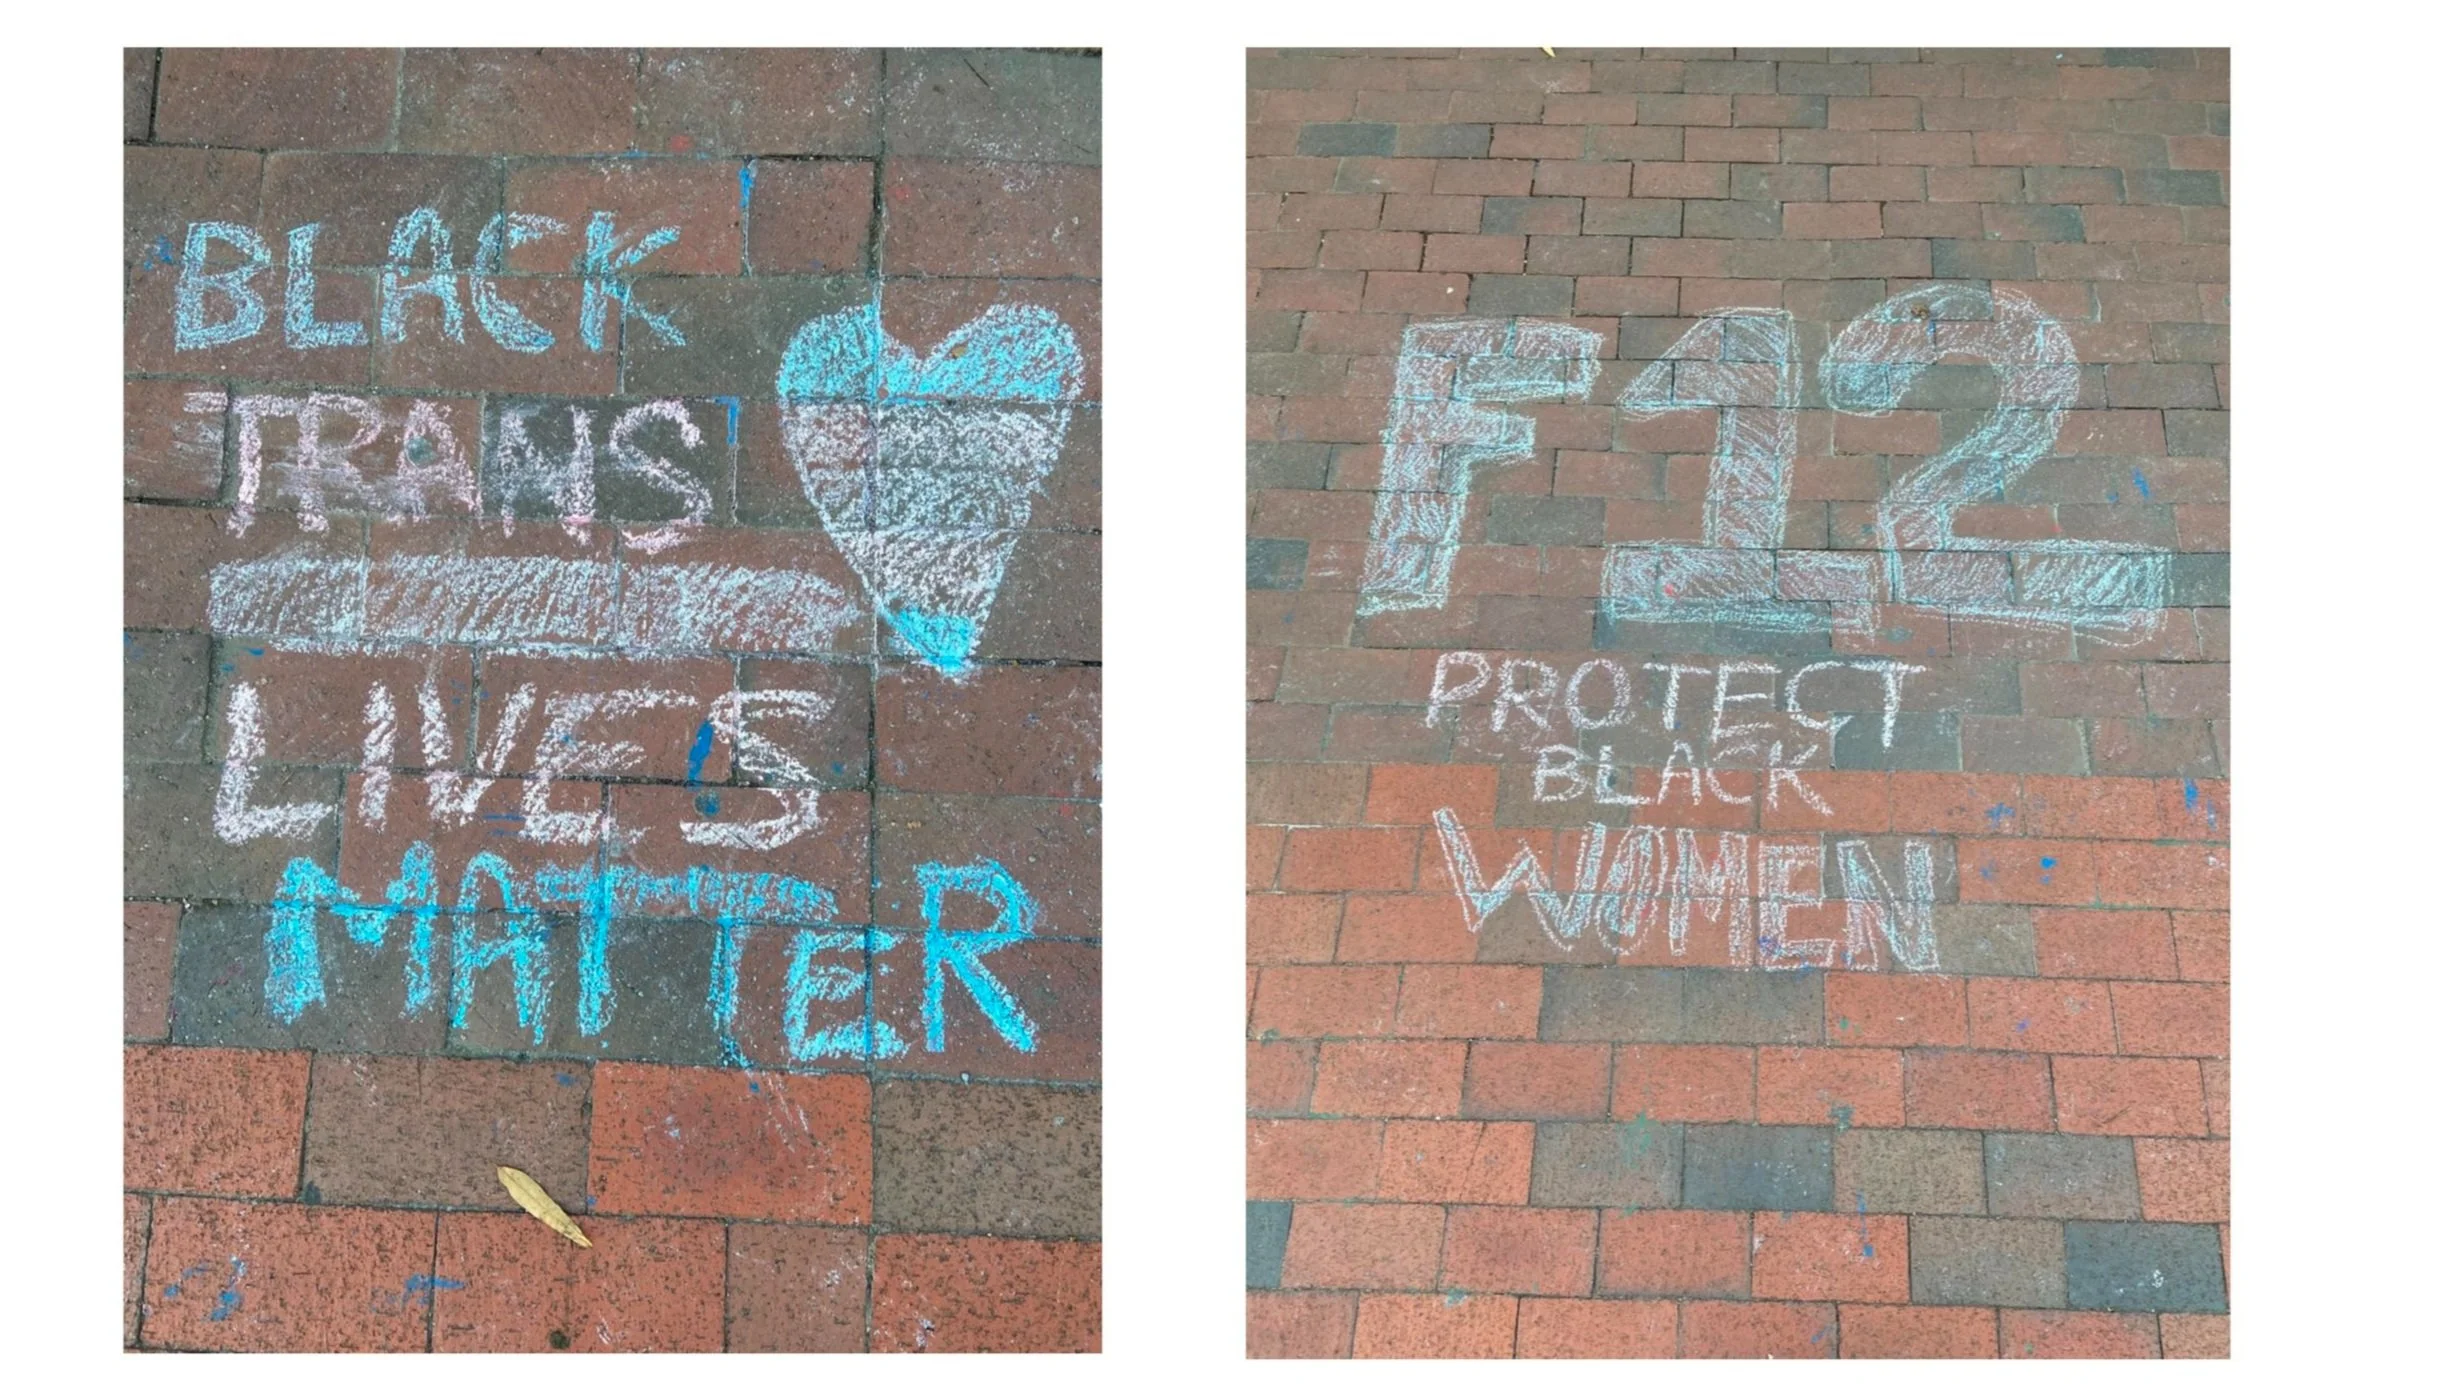 BLACK
TRANS
LIVES
MATTER
F12
PROTECT
BLACK
WOMEN